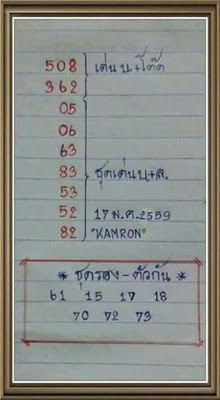 508 เด่น บ.+โต๊ด
362
05
06
63
83 ชุดเด่น บ+ล.
53
52 17 ม.ค. 2559
82 "KAMRON"
* ชุดรอง - ตัวกัน *
61 15 17 18
70 72 73